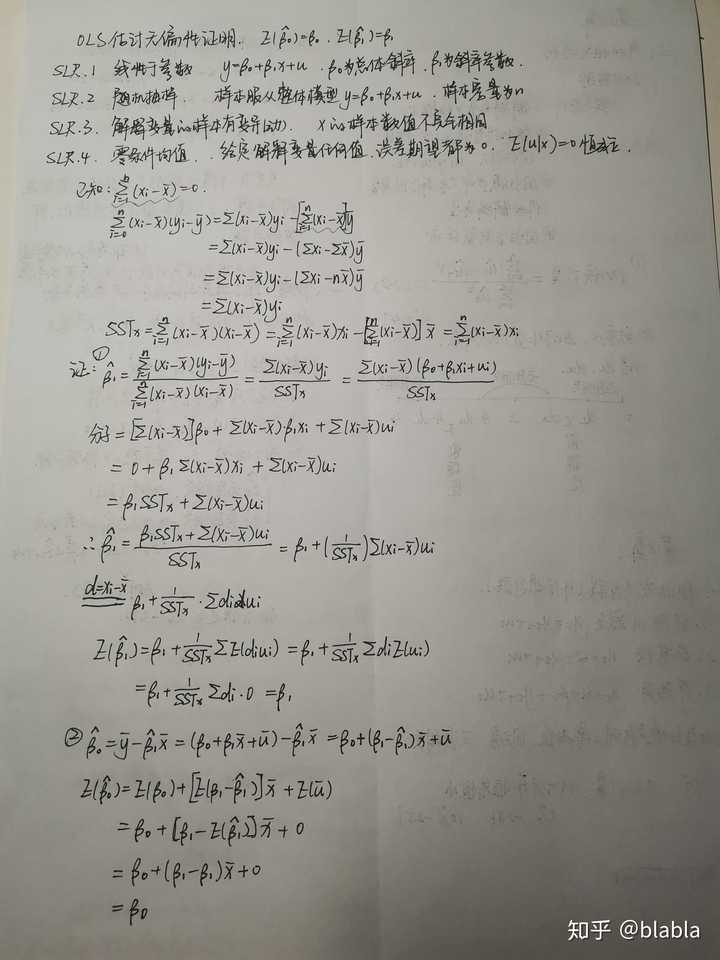 OLS估计无偏性证明. E(β̂₀)=β₀. E(β̂₁)=β₁
SLR.1 线性于参数 y=β₀+β₁x+u . β₀为总体斜率. β₁为斜率参数.
SLR.2 随机抽样. 样本服从整体模型y=β₀+β₁x+u. 样本容量为n
SLR.3. 解释变量的样本有变异(动). x的样本数值不完全相同
SLR.4. 零条件均值. 给定解释变量任何值.误差期望都为0. E(u|x)=0恒成立.
已知: Σⁿᵢ₌₁(xi-x̄)=0.
Σⁿᵢ₌₀(xi-x̄)(yi-ȳ)=Σ(xi-x̄)yi-[Σⁿᵢ₌₁(xi-x̄)]ȳ
=Σ(xi-x̄)yi-(Σxi-Σx̄)ȳ
=Σ(xi-x̄)yi-(Σxi-nx̄)ȳ
=Σ(xi-x̄)yi
SSTx=Σⁿᵢ₌₁(xi-x̄)(xi-x̄)=Σⁿᵢ₌₁(xi-x̄)xi-[Σⁿᵢ₌₁(xi-x̄)]x̄=Σⁿᵢ₌₁(xi-x̄)xi
证:① β̂₁=Σⁿᵢ₌₁(xi-x̄)(yi-ȳ)/Σⁿᵢ₌₁(xi-x̄)(xi-x̄)=Σ(xi-x̄)yi/SSTx=Σ(xi-x̄)(β₀+β₁xi+ui)/SSTx
分子=[Σ(xi-x̄)]β₀+Σ(xi-x̄)·β₁xi+Σ(xi-x̄)ui
=0+β₁Σ(xi-x̄)xi+Σ(xi-x̄)ui
=β₁SSTx+Σ(xi-x̄)ui
∴β̂₁=β₁SSTx+Σ(xi-x̄)ui/SSTx=β₁+(1/SSTx)Σ(xi-x̄)ui
d=xi-x̄ β₁+1/SSTx·Σdiui
E(β̂₁)=β₁+1/SSTxΣE(diui)=β₁+1/SSTxΣdiE(ui)
=β₁+1/SSTxΣdi·0=β₁
②β̂₀=ȳ-β̂₁x̄=(β₀+β₁x̄+ū)-β̂₁x̄=β₀+(β₁-β̂₁)x̄+ū
E(β̂₀)=E(β₀)+[E(β₁-β̂₁)]x̄+E(ū)
=β₀+[β₁-E(β̂₁)]x̄+0
=β₀+(β₁-β₁)x̄+0
=β₀
知乎 @blabla